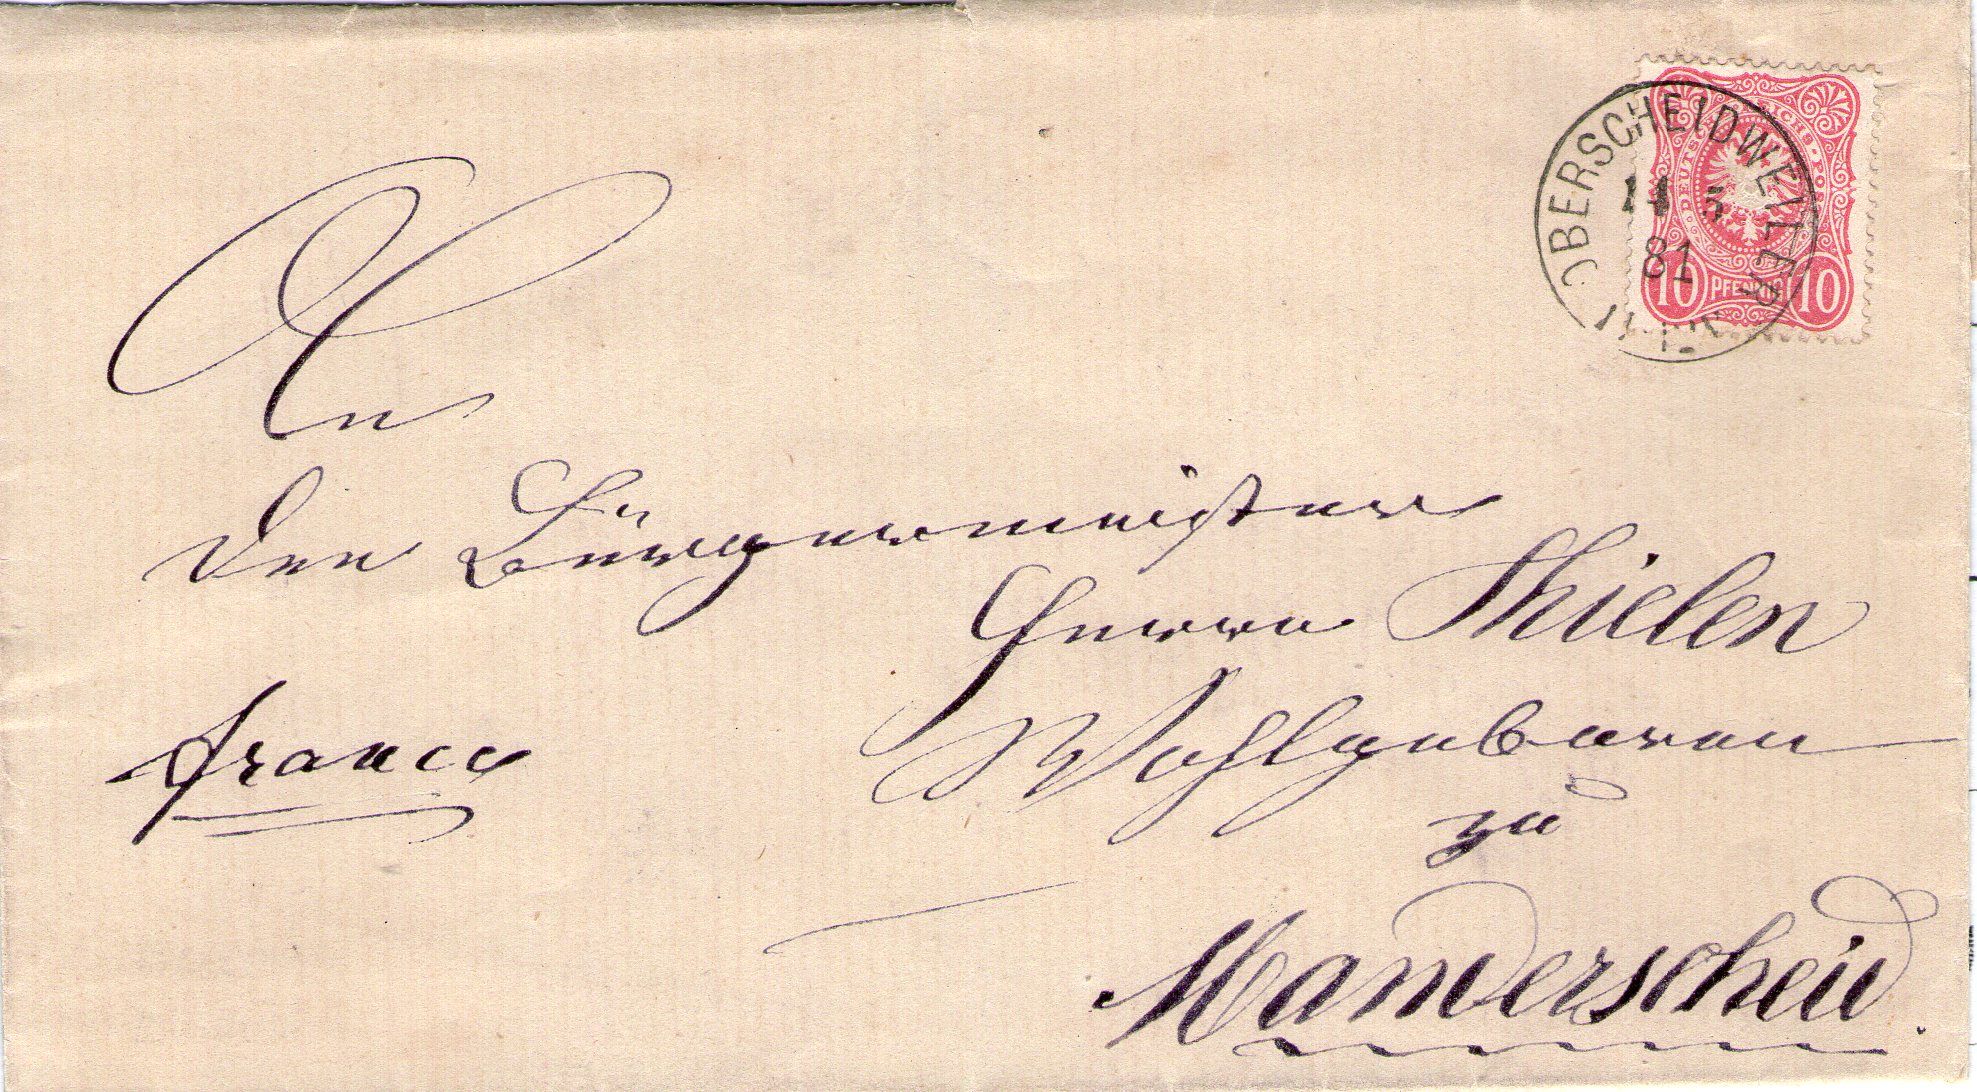 OBERSCHEIDWEILER
81
DEUTSCHE REICHS-POST
10 PFENNIG 10
An
den Bürgermeister
Herrn Thielen
Wohlgeboren
franco
zu
Manderscheid.